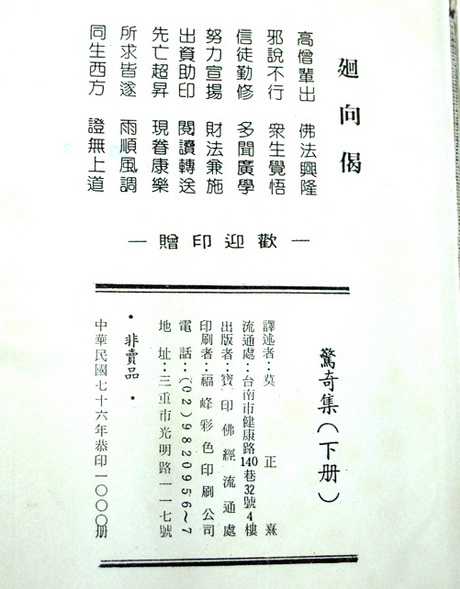 廻向偈
高僧輩出 佛法興隆
邪說不行 衆生覺悟
信徒勤修 多聞廣學
努力宣揚 財法兼施
出資助印 閱讀轉送
先亡超昇 現眷康樂
所求皆遂 雨順風調
同生西方 證無上道
—歡迎印贈—
驚奇集(下册)
譯述者:莫正熹
流通處:台南市健康路140巷32號4樓
出版者:寶印佛經流通處
印刷者:福峰彩色印刷公司
電話:(02)9820956~7
地址:三重市光明路一一七號
•非賣品•
中華民國七十六年恭印一〇〇〇册